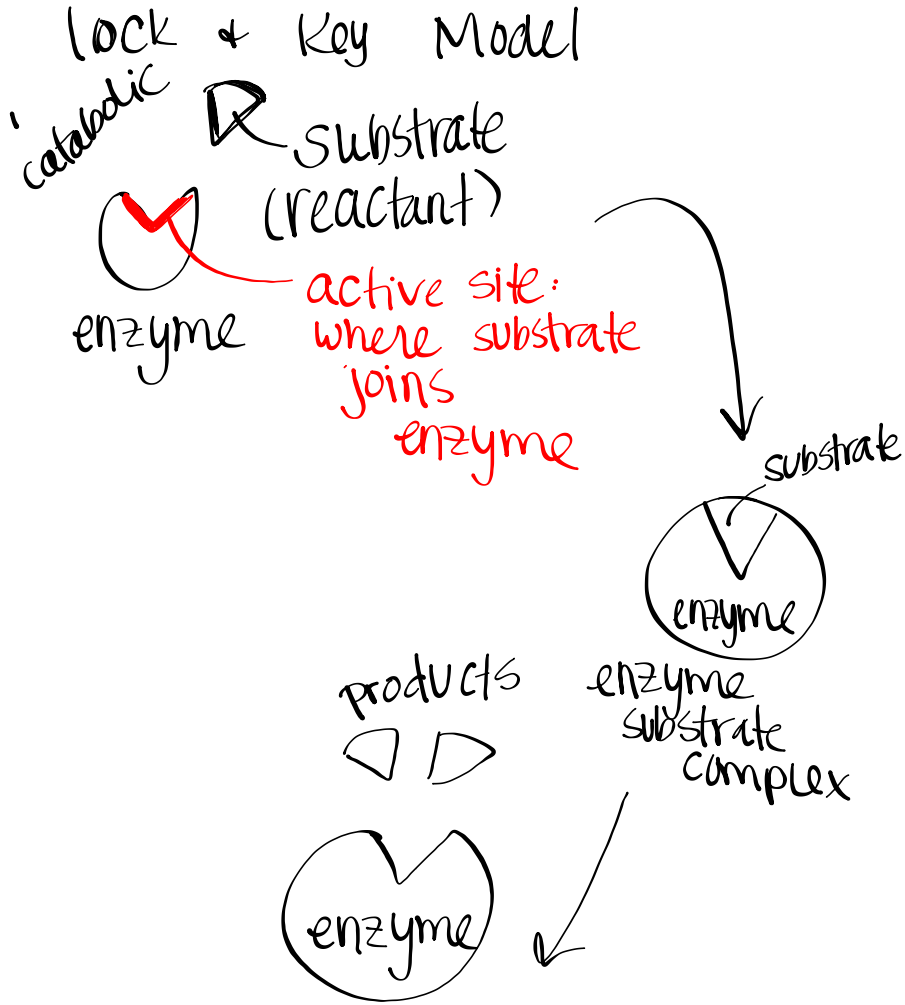 lock & Key Model
catabolic
substrate
(reactant)
active site:
where substrate
joins
enzyme
enzyme
substrate
enzyme
enzyme
substrate
complex
products
enzyme